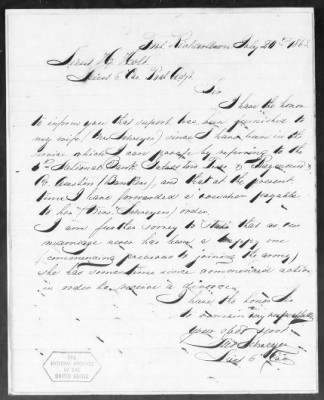 July 20th 186
Sir
I have the honor
to inform you that support has been furnished to
my wife (Mrs Schreyer) since I have been in the
service which I can prove by referring to the
National Bank
(Bankers), and that at the present
time I have forwarded a voucher payable
to her (Mrs. Schreyer) order.
I am further sorry to state that as our
marriage never has been a happy one
(commencing previous to joining the army)
she has some time since commenced action
in order to receive a divorce.
I have the honor Sir
to remain very respectfully
your obdt servt
Schreyer
THE
NATIONAL ARCHIVES
OF THE
UNITED STATES